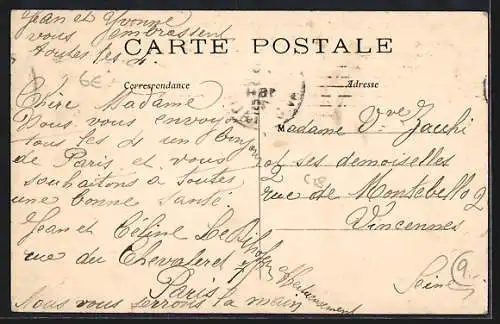 Jean et Yvonne
vous embrassent
toutes les 4.
CARTE POSTALE
Correspondance
Adresse
6E
Chère Madame
Nous vous envoyons
tous les 4 un bonjour
de Paris et vous
souhaitons à toutes
une bonne santé.
Jean et Céline
rue du Chevaleret
Paris
affectueusement
Nous vous serrons la main
M
Madame Vve Zacchi
et ses demoiselles
rue de Montebello 2
2
Vincennes
Seine
9.-